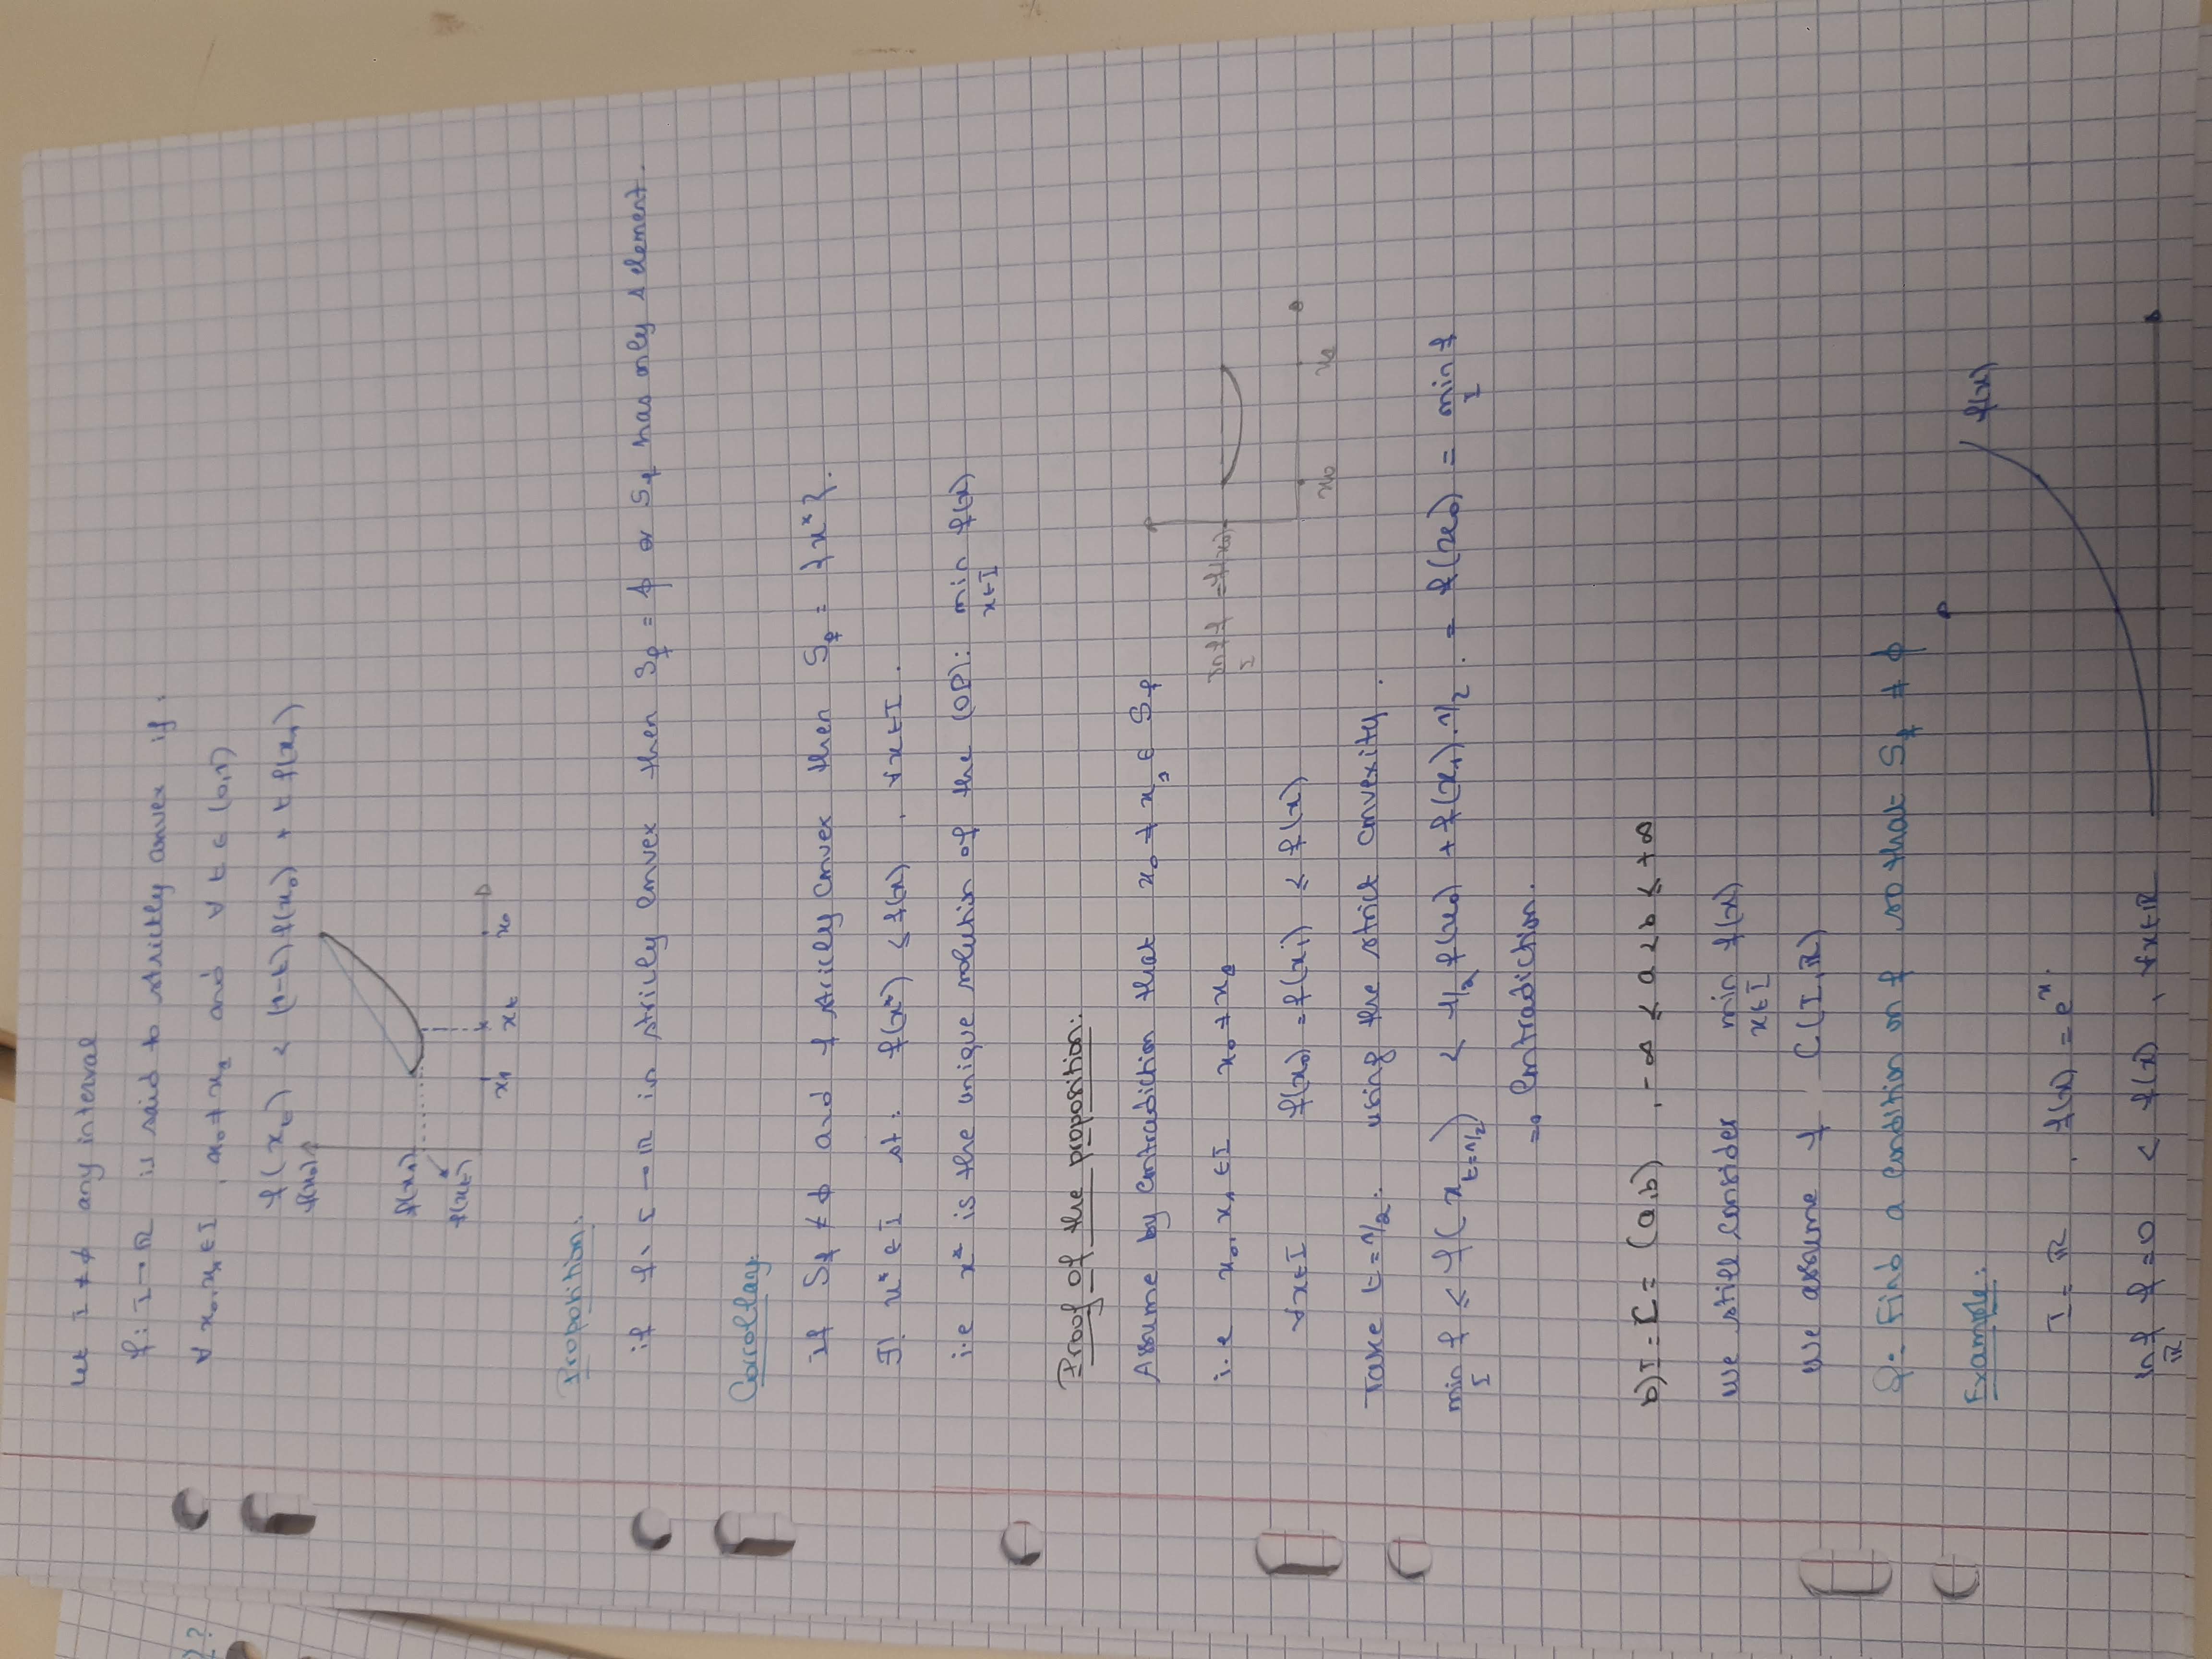 Let I ≠ ∅ any interval
f: I → ℝ is said to strictly convex if:
∀ x₀, x₁ ∈ I, x₀ ≠ x₁ and ∀ t ∈ (0,1)
f(x_t) < (1-t) f(x₀) + t f(x₁)
f(x₀)
f(x₁)
f(x_t)
x₁ x_t x₀
Proposition:
if f: I → ℝ is stricly convex then S_f = ∅ or S_f has only 1 element.
Corrollary:
if S_f ≠ ∅ and f stricly convex then S_f = {x*}.
∃! x* ∈ I st: f(x*) ≤ f(x), ∀x ∈ I.
i.e x* is the unique solution of the (OP): min f(x)
x∈I
Proof of the proposition:
Assume by contradiction that x₀ ≠ x₁ ∈ S_f
i.e x₀, x₁ ∈ I x₀ ≠ x₁
inf f = f(x₀)
I
∀x∈I f(x₀) = f(x₁) ≤ f(x)
x₀ x₁
Take t = 1/2: using the strict convexity.
min f ≤ f(x_{t=1/2}) < 1/2 f(x₀) + f(x₁).1/2 = f(x₀) = min f
I I
⇒ Contradiction.
b) I = C = (a,b), -∞ ≤ a < b ≤ +∞
we still consider min f(x)
x∈I
we assume f C(I,ℝ)
Q: Find a condition on f so that S_f ≠ ∅
Example:
f(x)
I = ℝ, f(x) = eˣ
inf f = 0 < f(x), ∀x∈ℝ
ℝ
??